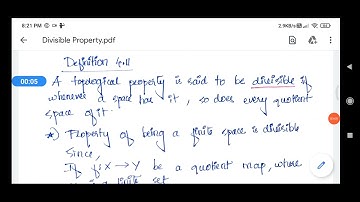 8:21 PM
2.9KB/s
Divisible Property.pdf
00:05
Definition 4.11
A topological property is said to be divisible if
whenever a space has it, so does every quotient
space of it.
*) Property of being a finite space is divisible
Since,
If f: X → Y be a quotient map, where
finite set